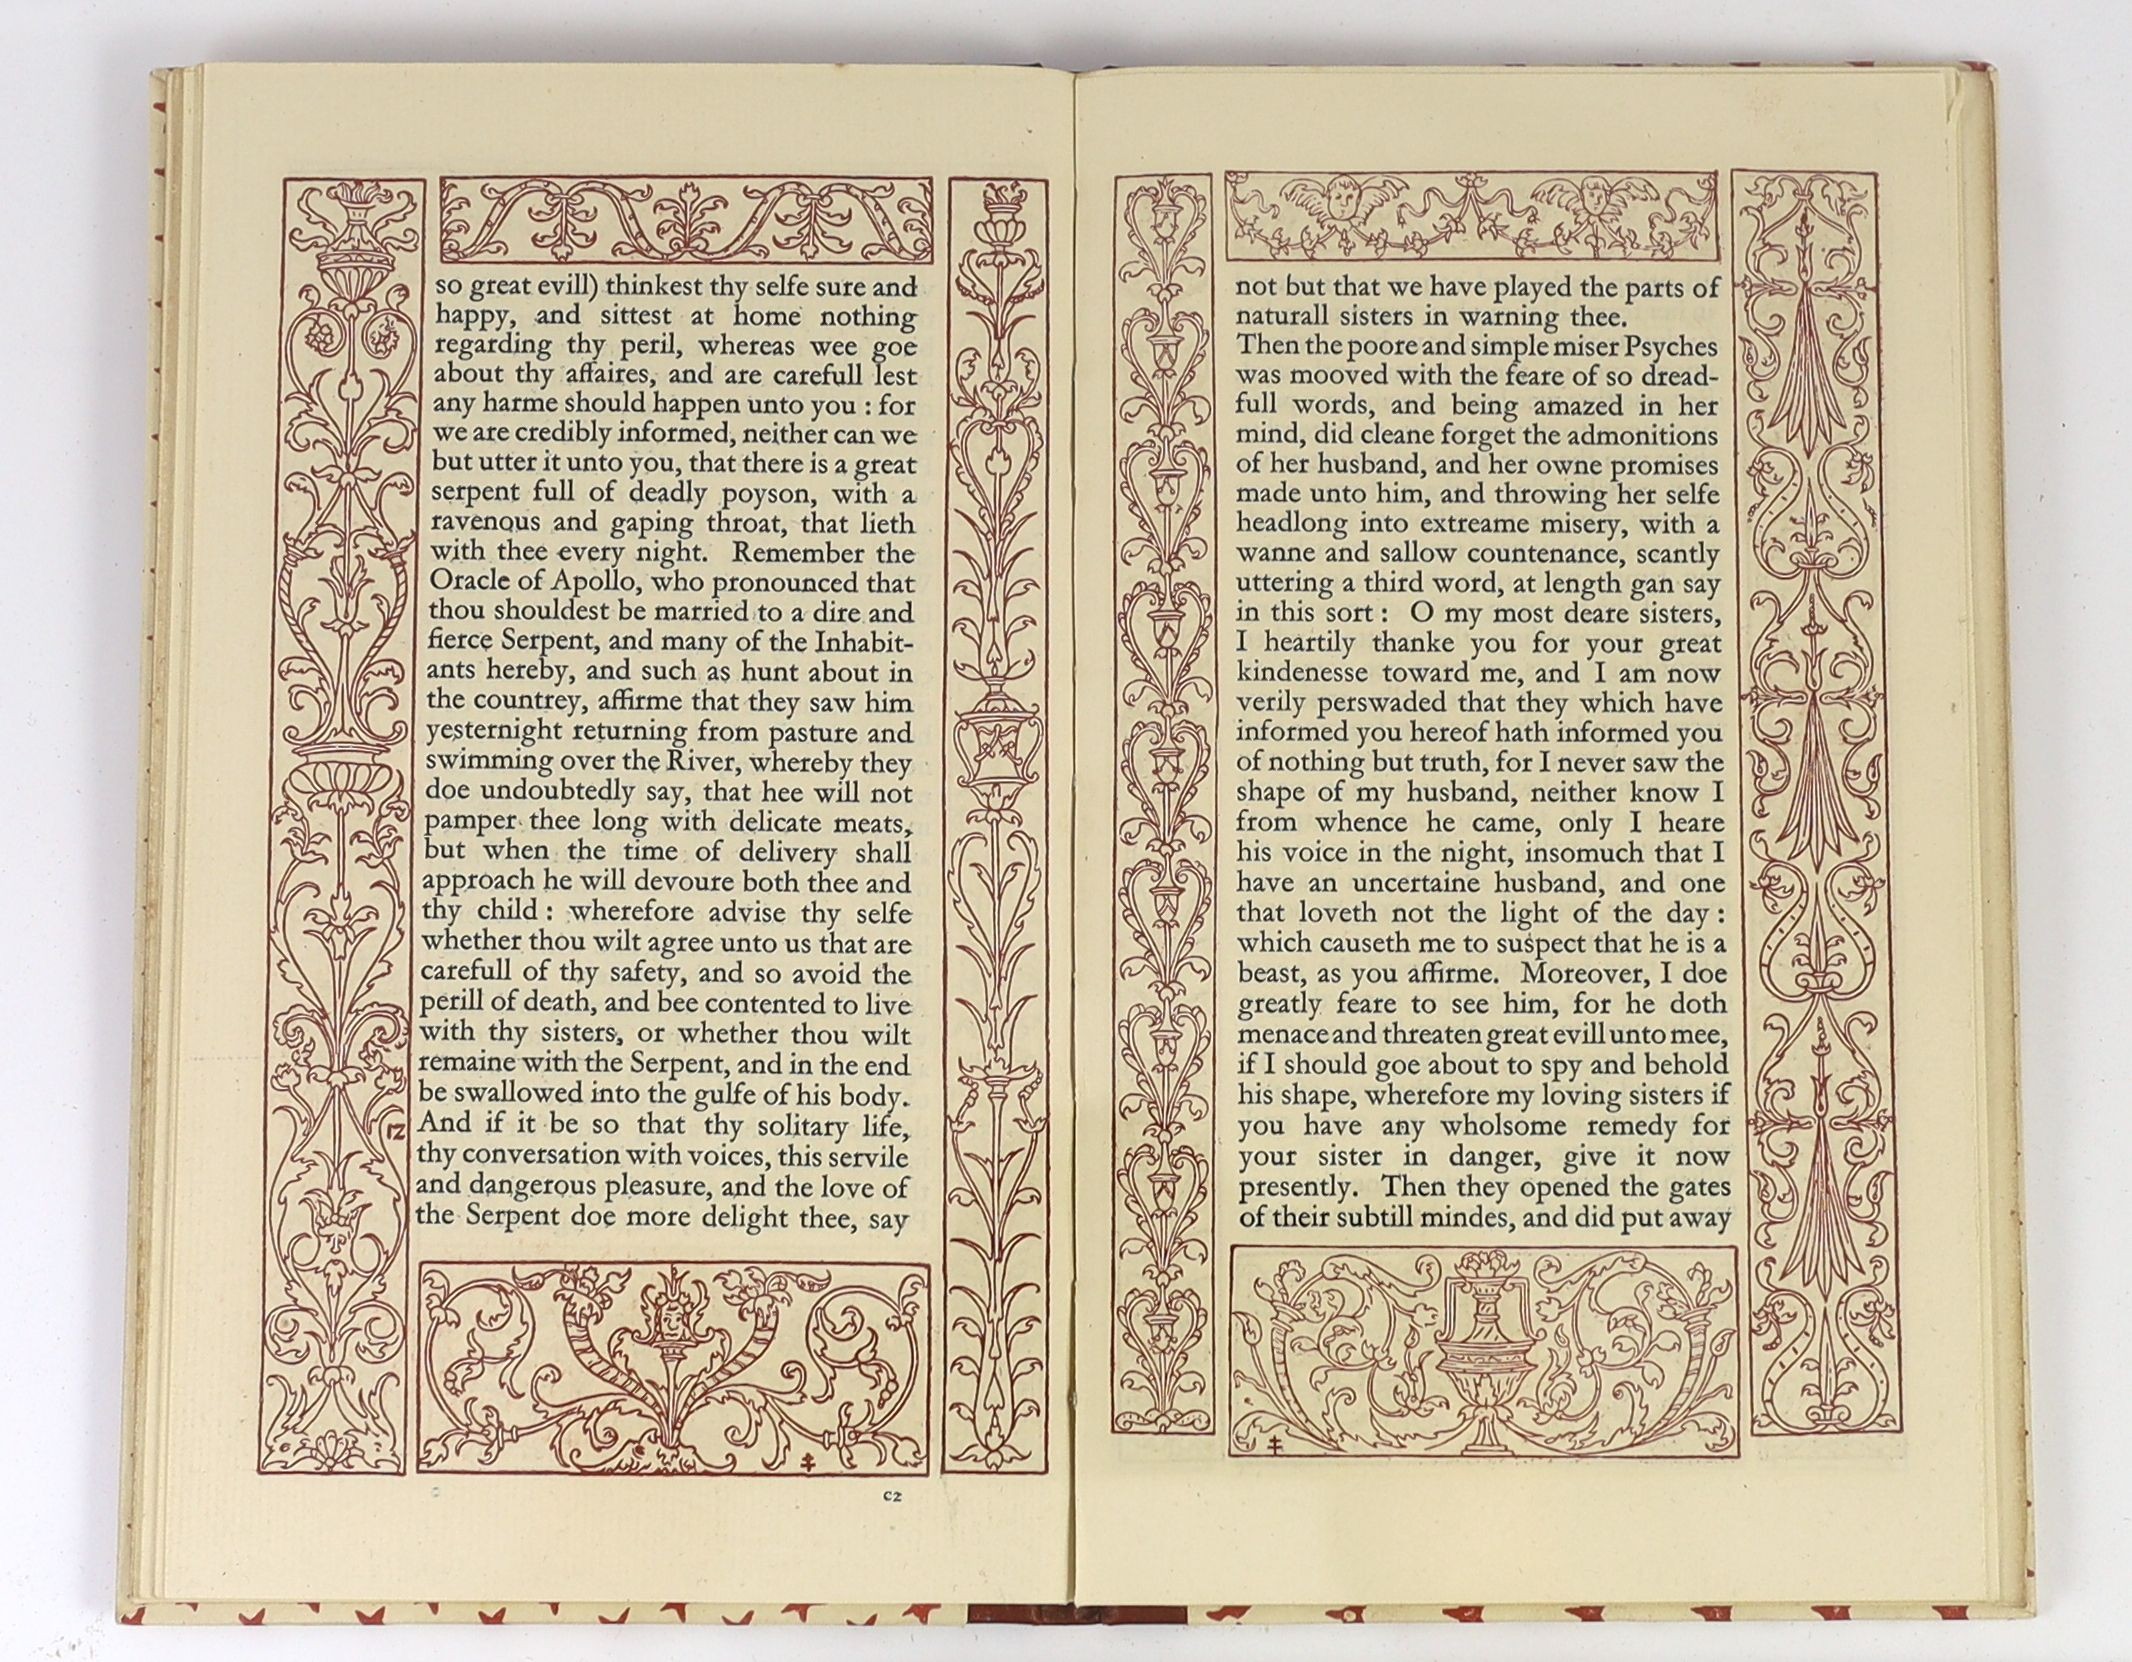 so great evill) thinkest thy selfe sure and
happy, and sittest at home nothing
regarding thy peril, whereas wee goe
about thy affaires, and are carefull lest
any harme should happen unto you : for
we are credibly informed, neither can we
but utter it unto you, that there is a great
serpent full of deadly poyson, with a
ravenous and gaping throat, that lieth
with thee every night. Remember the
Oracle of Apollo, who pronounced that
thou shouldest be married to a dire and
fierce Serpent, and many of the Inhabit-
ants hereby, and such as hunt about in
the countrey, affirme that they saw him
yesternight returning from pasture and
swimming over the River, whereby they
doe undoubtedly say, that hee will not
pamper thee long with delicate meats,
but when the time of delivery shall
approach he will devoure both thee and
thy child : wherefore advise thy selfe
whether thou wilt agree unto us that are
carefull of thy safety, and so avoid the
perill of death, and bee contented to live
with thy sisters, or whether thou wilt
remaine with the Serpent, and in the end
be swallowed into the gulfe of his body.
And if it be so that thy solitary life,
12
thy conversation with voices, this servile
and dangerous pleasure, and the love of
the Serpent doe more delight thee, say
c2
not but that we have played the parts of
naturall sisters in warning thee.
Then the poore and simple miser Psyches
was mooved with the feare of so dread-
full words, and being amazed in her
mind, did cleane forget the admonitions
of her husband, and her owne promises
made unto him, and throwing her selfe
headlong into extreame misery, with a
wanne and sallow countenance, scantly
uttering a third word, at length gan say
in this sort : O my most deare sisters,
I heartily thanke you for your great
kindenesse toward me, and I am now
verily perswaded that they which have
informed you hereof hath informed you
of nothing but truth, for I never saw the
shape of my husband, neither know I
from whence he came, only I heare
his voice in the night, insomuch that I
have an uncertaine husband, and one
that loveth not the light of the day :
which causeth me to suspect that he is a
beast, as you affirme. Moreover, I doe
greatly feare to see him, for he doth
menace and threaten great evill unto mee,
if I should goe about to spy and behold
his shape, wherefore my loving sisters if
you have any wholsome remedy for
your sister in danger, give it now
presently. Then they opened the gates
of their subtill mindes, and did put away